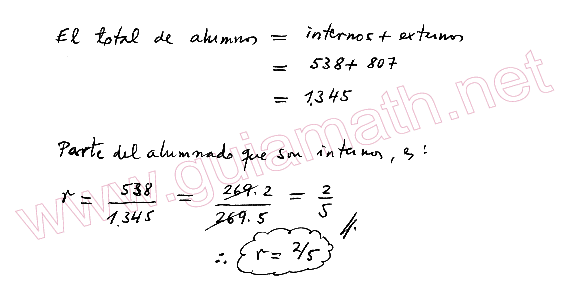 El total de alumnos = internos + externos
= 538 + 807
= 1.345
Parte del alumnado que son internos, es:
r = 538/1.345 = 269.2/269.5 = 2/5 //.
∴ r = 2/5
www.guiamath.net